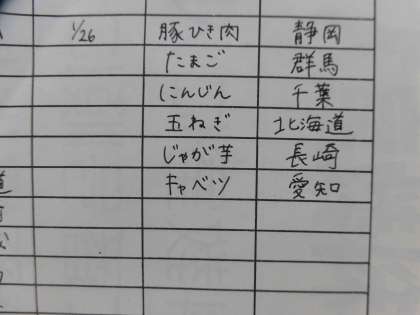 1/26 豚ひき肉 静岡
たまご 群馬
にんじん 千葉
玉ねぎ 北海道
じゃが芋 長崎
キャベツ 愛知
道